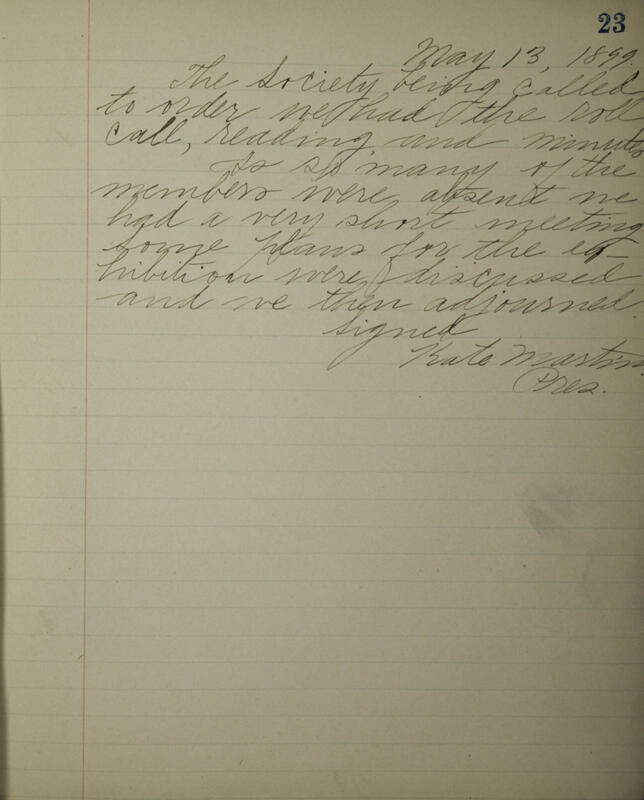 23
May 13, 1899.
The Society being called
to order we had the roll
call, reading and minutes
As so many of the
members were absent we
had a very short meeting
some plans for the ex-
hibition were discussed
and we then adjourned.
Signed
Kate Martin.
Pres.